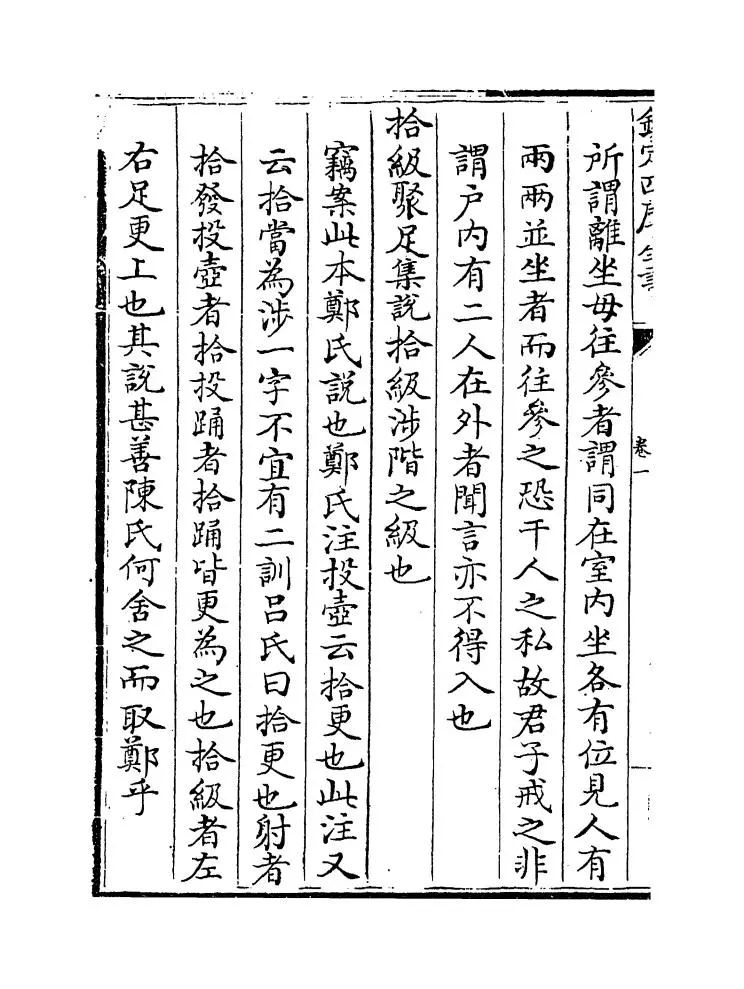 欽定四庫全書
卷一
所謂離坐毋往參者謂同在室内坐各有位見人有
兩兩並坐者而往參之恐干人之私故君子戒之非
謂户内有二人在外者聞言亦不得入也
拾級聚足集說拾級涉階之級也
竊案此本鄭氏說也鄭氏注投壺云拾更也此注又
云拾當為涉一字不宜有二訓吕氏曰拾更也射者
拾發投壺者拾投踊者拾踊皆更為之也拾級者左
右足更上也其說甚善陳氏何舍之而取鄭乎